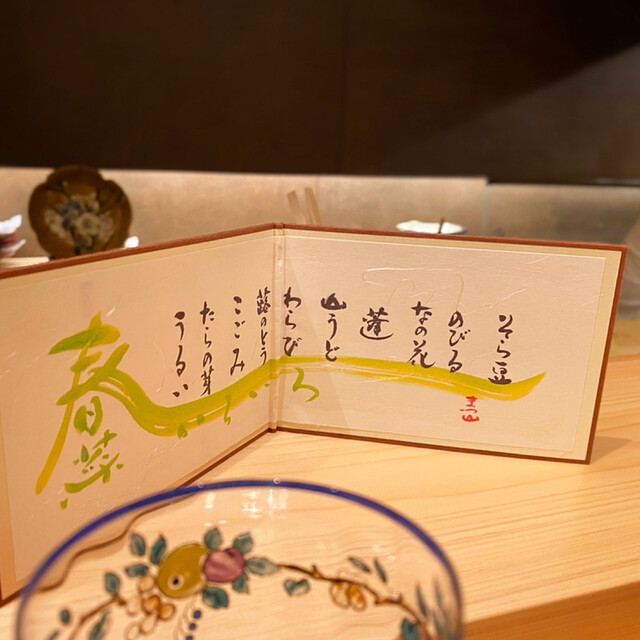 そら豆
のびる
なの花
蓬
山うど
わらび
蕗のとう
こごみ
たらの芽
うるい
いろいろ
春菜